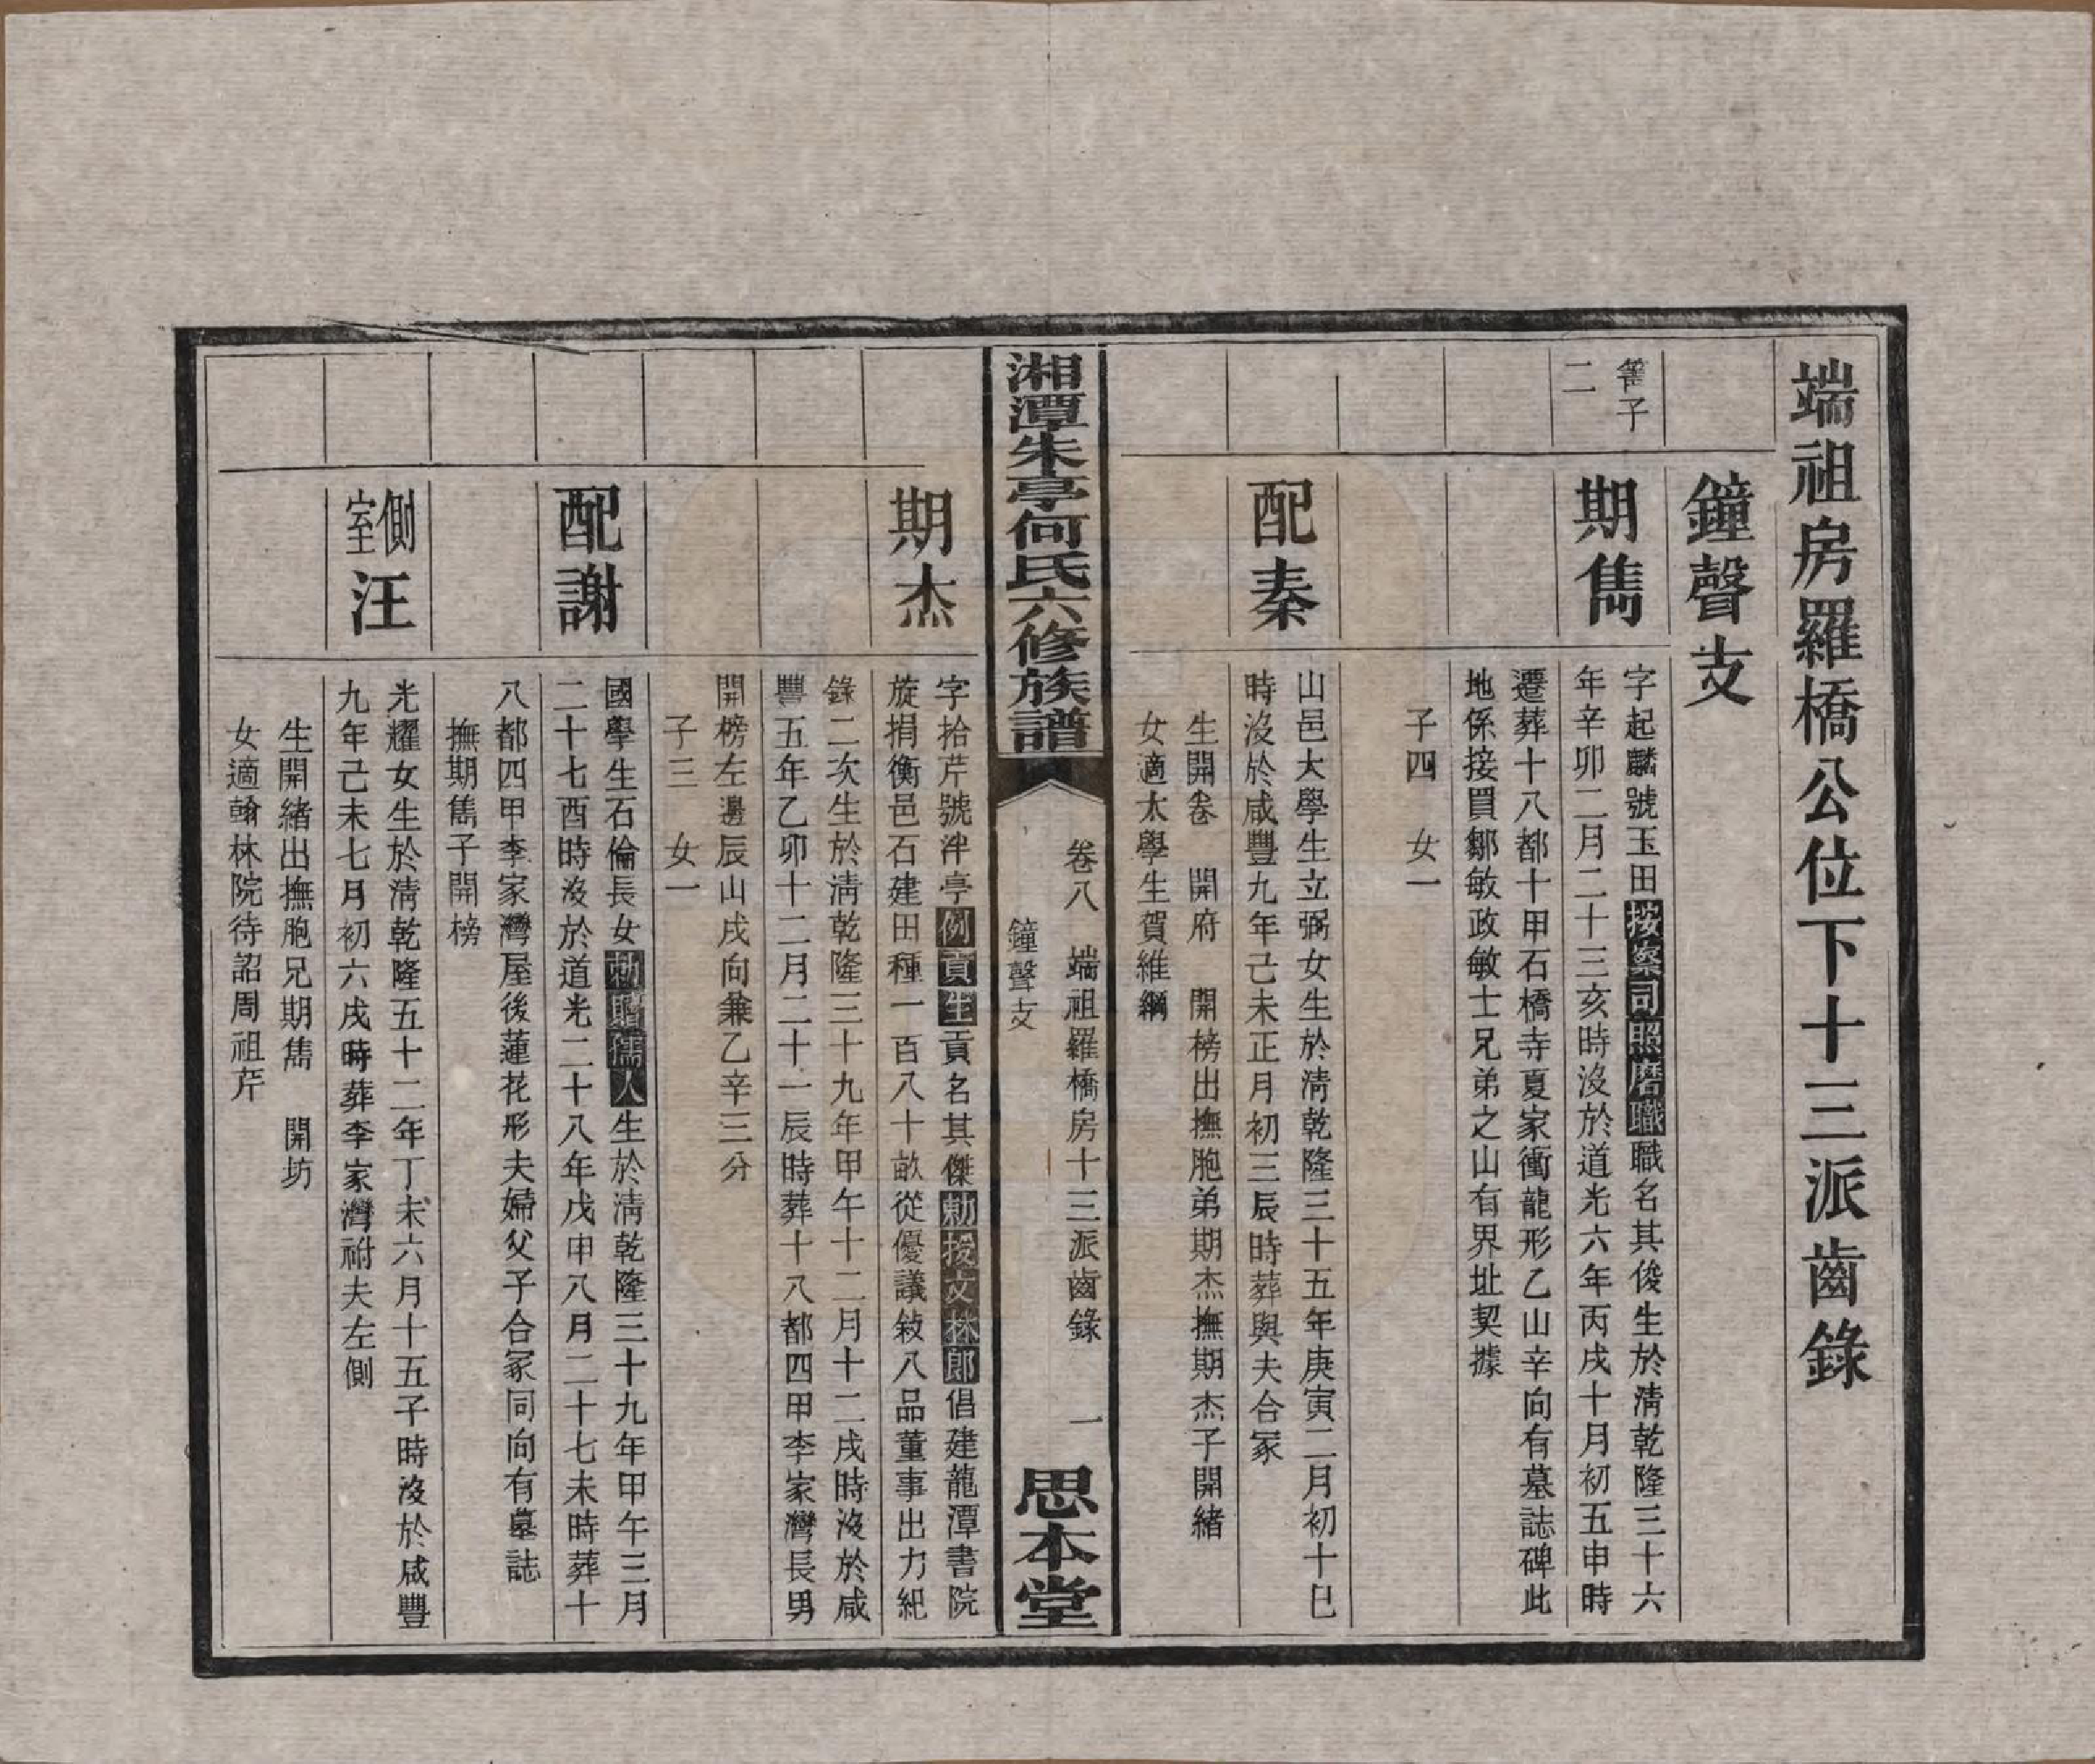 端祖房羅橋公位下十三派齒錄
鐘聲支
子
二
期雋
字起麟號玉田按察司照磨職職名其俊生於淸乾隆三十六
年辛卯二月二十三亥時沒於道光六年丙戌十月初五申時
遷葬十八都十甲石橋寺夏家衝龍形乙山辛向有墓誌碑此
地係接買鄒敏政敏士兄弟之山有界址契據
子四　女一
配秦
山邑大學生立弼女生於淸乾隆三十五年庚寅二月初十巳
時沒於咸豐九年己未正月初三辰時葬與夫合冢
生開卷　開府　開榜出撫胞弟期杰撫期杰子開緒
女適太學生賀維綱
湘潭朱亭何氏六修族譜
卷八　端祖羅橋房十三派齒錄　一
鐘聲支
思本堂
期杰
字拾芹號泮亭例貢生貢名其傑勅授文林郎倡建龍潭書院
旋捐衡邑石建田種一百八十畝從優議敍八品董事出力紀
錄二次生於淸乾隆三十九年甲午十二月十二戌時沒於咸
豐五年乙卯十二月二十一辰時葬十八都四甲李家灣長男
開榜左邊辰山戌向兼乙辛三分
子三　女一
配謝
國學生石倫長女勅贈孺人生於淸乾隆三十九年甲午三月
二十七酉時沒於道光二十八年戊申八月二十七未時葬十
八都四甲李家灣屋後蓮花形夫婦父子合冢同向有墓誌
撫期雋子開榜
側室汪
光耀女生於淸乾隆五十二年丁未六月十五子時沒於咸豐
九年己未七月初六戌時葬李家灣祔夫左側
生開緒出撫胞兄期雋　開坊
女適翰林院待詔周祖芹